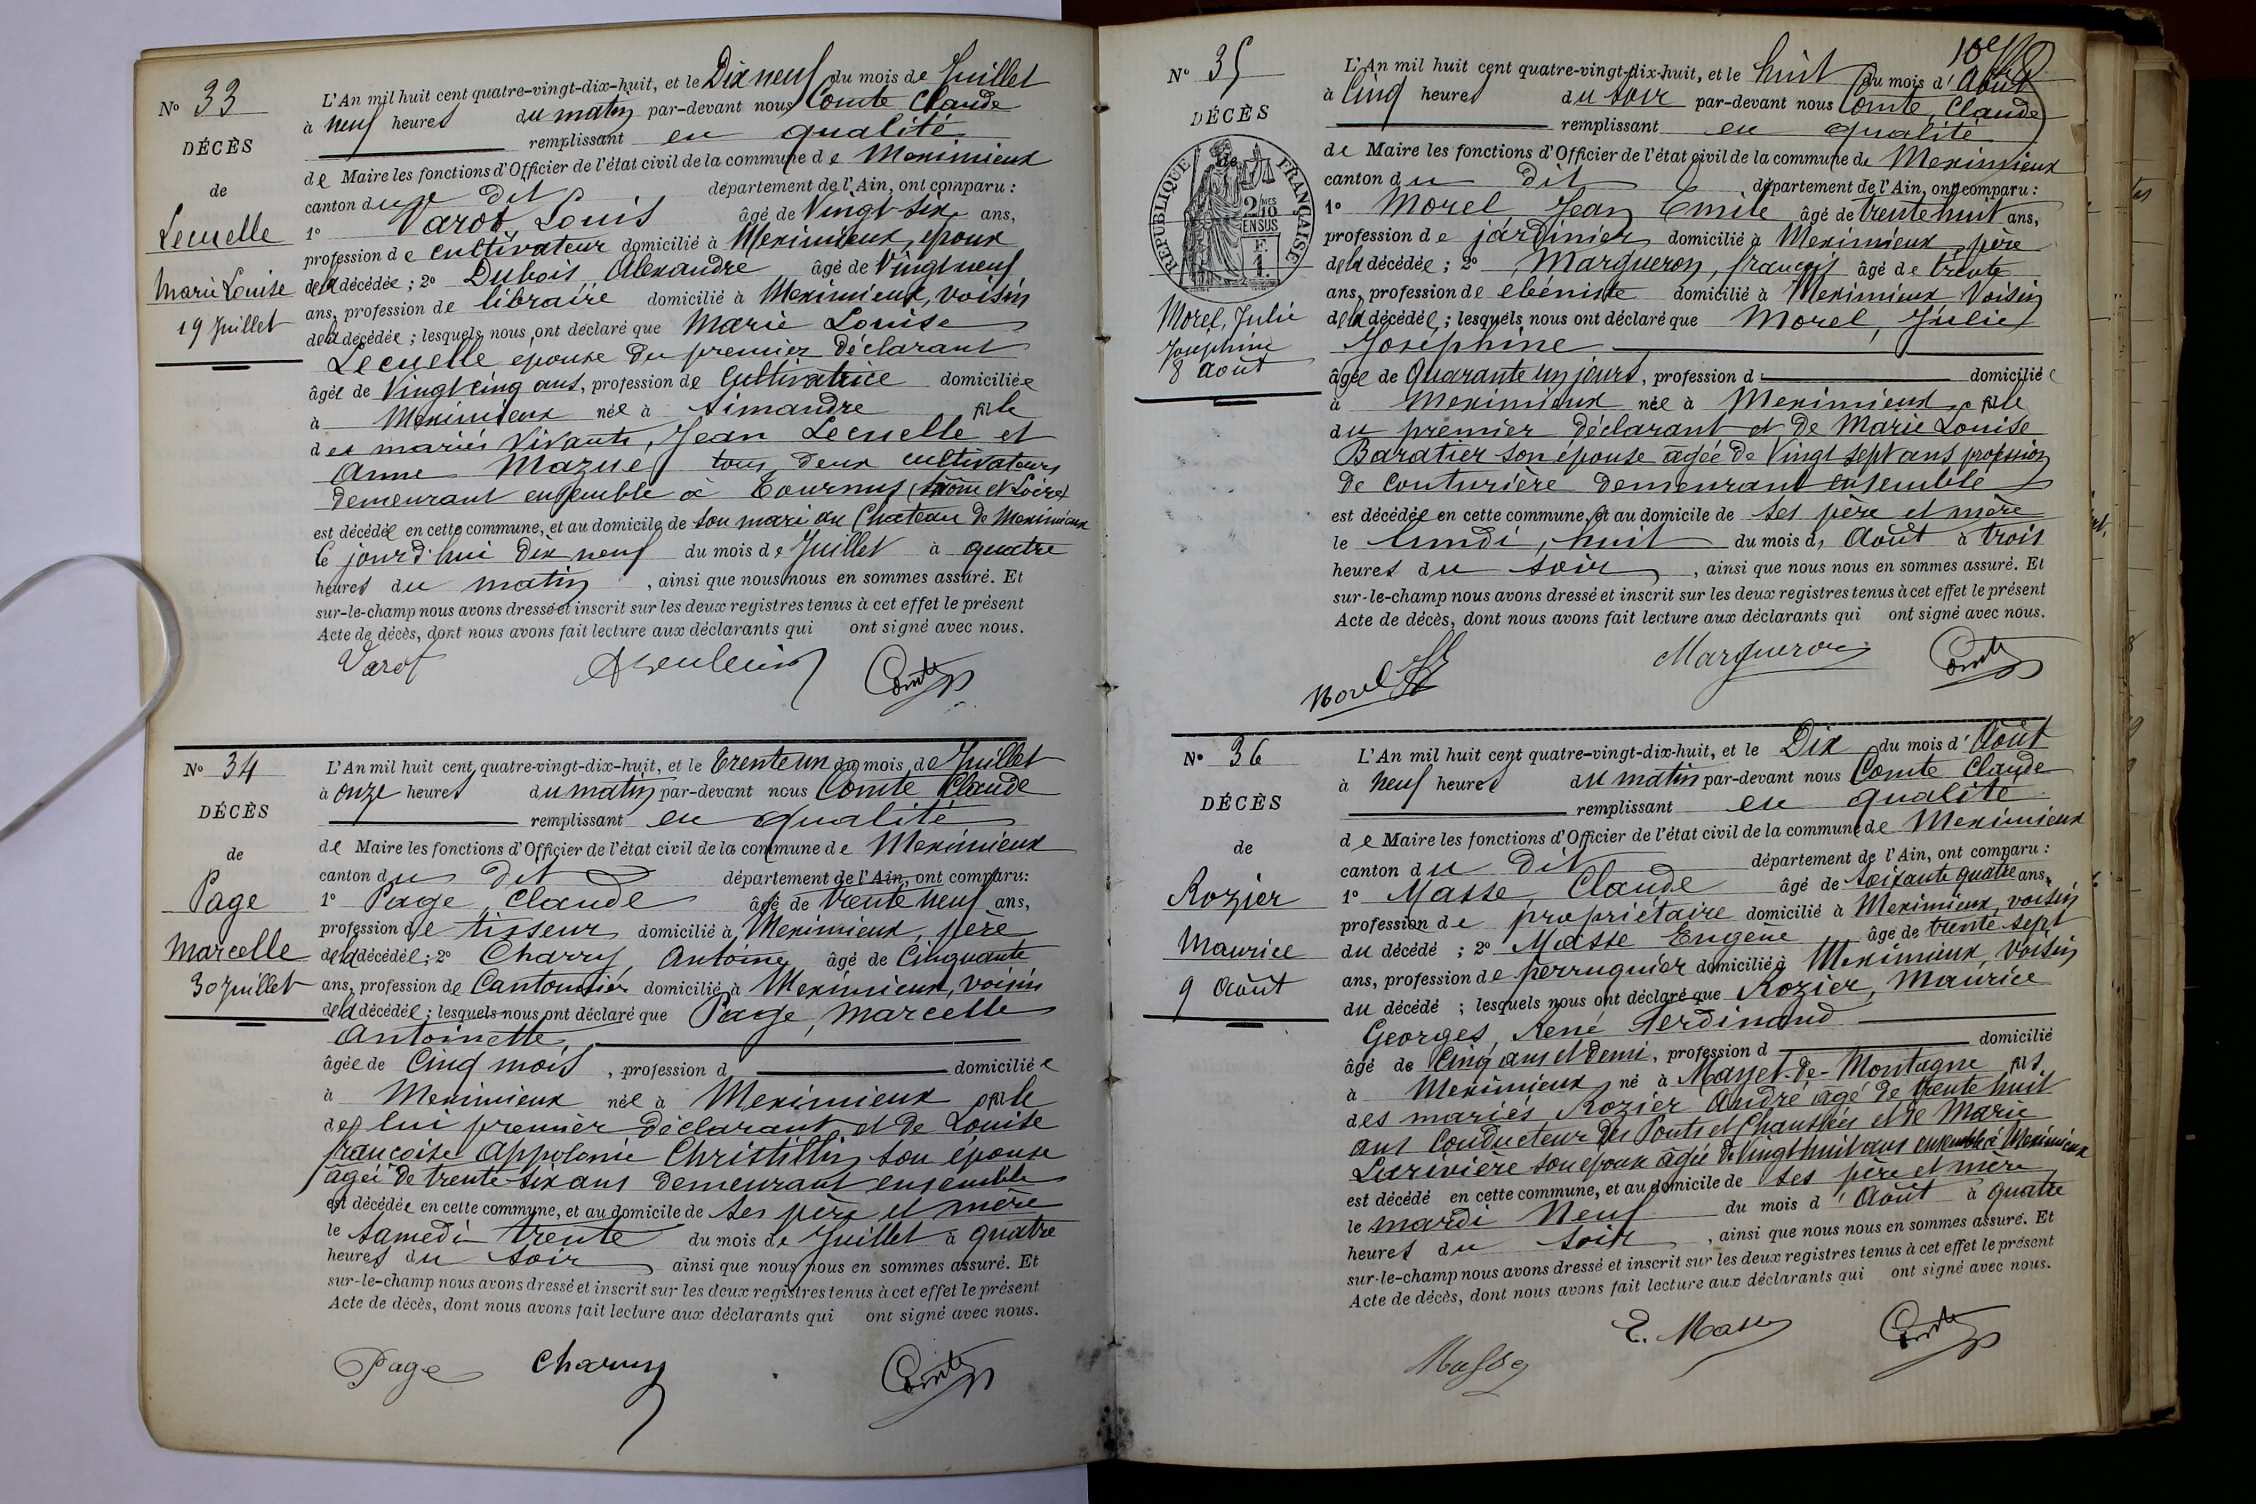 N° 33
DÉCÈS
de
Lecuelle
Marie Louise
19 Juillet
L'An mil huit cent quatre-vingt-dix-huit, et le Dix neuf du mois de Juillet
à neuf heures du matin par-devant nous Comte Claude
remplissant en qualité
de Maire les fonctions d'Officier de l'état civil de la commune de Meximieux
canton du dit département de l'Ain, ont comparu :
1° Varot, Louis âgé de Vingt six ans,
profession de cultivateur domicilié à Meximieux, epoux
de la décédée ; 2° Dubois Alexandre âgé de Vingt neuf
ans, profession de libraire domicilié à Meximieux, voisin
de la décédée ; lesquels nous ont déclaré que Marie Louise
Lecuelle epouse du premier déclarant
âgée de Vingt cinq ans, profession de Cultivatrice domiciliée
à Meximieux née à Simandre fille
des mariés vivants, Jean Lecuelle et
Anne Mazué tous deux cultivateurs
demeurant ensemble à Tournus (Saône et Loire)
est décédée en cette commune, et au domicile de son mari au Chateau de Meximieux
Ce jourd'hui dix neuf du mois de Juillet à quatre
heures du matin, ainsi que nous nous en sommes assuré. Et
sur-le-champ nous avons dressé et inscrit sur les deux registres tenus à cet effet le présent
Acte de décès, dont nous avons fait lecture aux déclarants qui ont signé avec nous.
Varot Comte
N° 34
DÉCÈS
de
Page
Marcelle
30 Juillet
L'An mil huit cent quatre-vingt-dix-huit, et le Trente un du mois de Juillet
à onze heures du matin par-devant nous Comte Claude
remplissant en qualité
de Maire les fonctions d'Officier de l'état civil de la commune de Meximieux
canton du dit département de l'Ain, ont comparu:
1° Page, Claude âgé de trente neuf ans,
profession de tisseur domicilié à Meximieux, père
de la décédée ; 2° Charry Antoine âgé de Cinquante
ans, profession de Cantonnier domicilié à Meximieux, voisin
de la décédée ; lesquels nous ont déclaré que Page, Marcelle
Antoinette,
âgée de Cinq mois, profession d domiciliée
à Meximieux née à Meximieux fille
de lui premier déclarant et de Louise
françoise Appolonie Christillin son épouse
âgée de trente-six ans demeurant ensemble
est décédée en cette commune, et au domicile de ses père et mère
le samedi trente du mois de Juillet à quatre
heures du soir ainsi que nous nous en sommes assuré. Et
sur-le-champ nous avons dressé et inscrit sur les deux registres tenus à cet effet le présent
Acte de décès, dont nous avons fait lecture aux déclarants qui ont signé avec nous.
Page Charry Comte
10e
N° 35
DÉCÈS
de
RÉPUBLIQUE FRANÇAISE
2/10MES
EN SUS
F.
1.
Morel, Julie
Josephine
8 Août
L'An mil huit cent quatre-vingt-dix-huit, et le huit du mois d'Août
à Cinq heures du soir par-devant nous Comte, Claude
remplissant en qualité
de Maire les fonctions d'Officier de l'état civil de la commune de Meximieux
canton du dit département de l'Ain, ont comparu :
1° Morel Jean Emile âgé de trente huit ans,
profession de jardinier domicilié à Meximieux, père
de la décédée ; 2° Margueron, françois âgé de trente
ans, profession de ebéniste domicilié à Meximieux Voisin
de la décédée ; lesquels nous ont déclaré que Morel, Julie
Joséphine
âgée de Quarante un jours, profession d domiciliée
à Meximieux née à Meximieux fille
du premier déclarant et de Marie Louise
Baratier son épouse âgée de Vingt sept ans profession
de couturière demeurant ensemble
est décédée en cette commune, et au domicile de ses père et mère
le lundi, huit du mois d'Août à trois
heures du soir, ainsi que nous nous en sommes assuré. Et
sur-le-champ nous avons dressé et inscrit sur les deux registres tenus à cet effet le présent
Acte de décès, dont nous avons fait lecture aux déclarants qui ont signé avec nous.
Morel Margueron Comte
N° 36
DÉCÈS
de
Rozier
Maurice
9 Août
L'An mil huit cent quatre-vingt-dix-huit, et le Dix du mois d'Août
à neuf heures du matin par-devant nous Comte Claude
remplissant en qualité
de Maire les fonctions d'Officier de l'état civil de la commune de Meximieux
canton du dit département de l'Ain, ont comparu :
1° Masse, Claude âgé de soixante quatre ans,
profession de propriétaire domicilié à Meximieux, voisin
du décédé ; 2° Masse Eugène âgé de trente sept
ans, profession de perruquier domicilié à Meximieux, voisin
du décédé ; lesquels nous ont déclaré que Rozier, Maurice
Georges, René Ferdinand
âgé de Cinq ans et demi, profession d domicilié
à Meximieux né à Mayet-de-Montagne fils
des mariés Rozier André âgé de trente huit
ans Conducteur des Ponts et Chaussées et de Marie
Larivière son epouse âgée de Vingt huit ans ensemble à Meximieux
est décédé en cette commune, et au domicile de ses père et mère
le mardi Neuf du mois d'Août à quatre
heures du soir, ainsi que nous nous en sommes assuré. Et
sur-le-champ nous avons dressé et inscrit sur les deux registres tenus à cet effet le présent
Acte de décès, dont nous avons fait lecture aux déclarants qui ont signé avec nous.
Masse E. Masse Comte